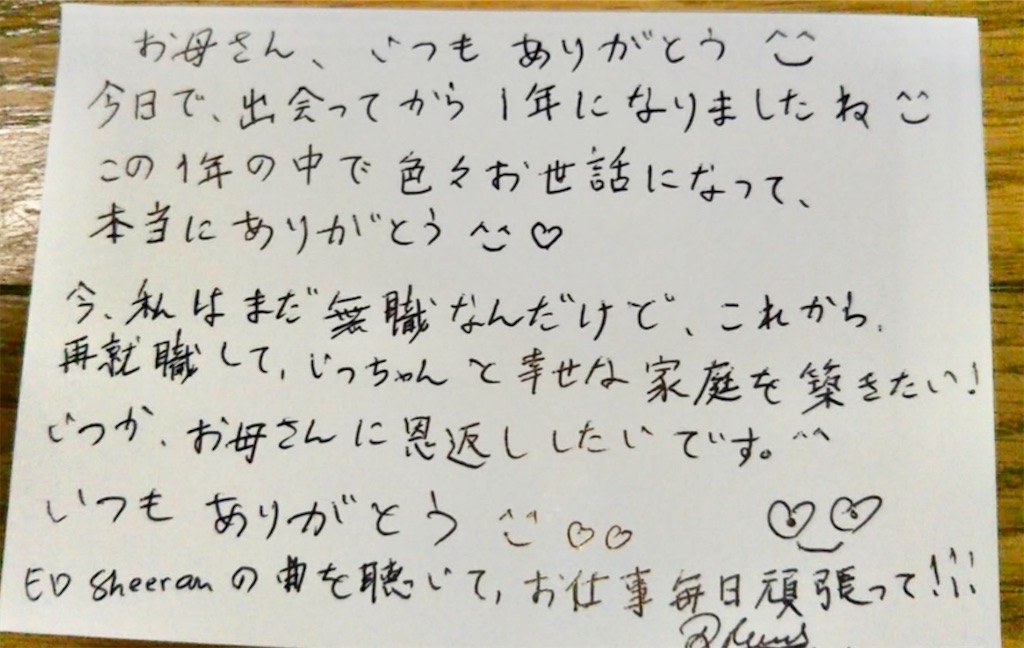 お母さん、いつも ありがとう ^^
今日で、出会ってから 1年になりましたね ^^
この1年の中で色々お世話になって、
本当にありがとう ^^ ♡
今、私はまだ無職なんだけど、これから、
再就職して、いっちゃんと幸せな家庭を築きたい!
いつか、お母さんに恩返ししたいです。^^
いつも ありがとう ^^ ♡♡
ED Sheeranの曲を聴いて、お仕事毎日頑張って!!!